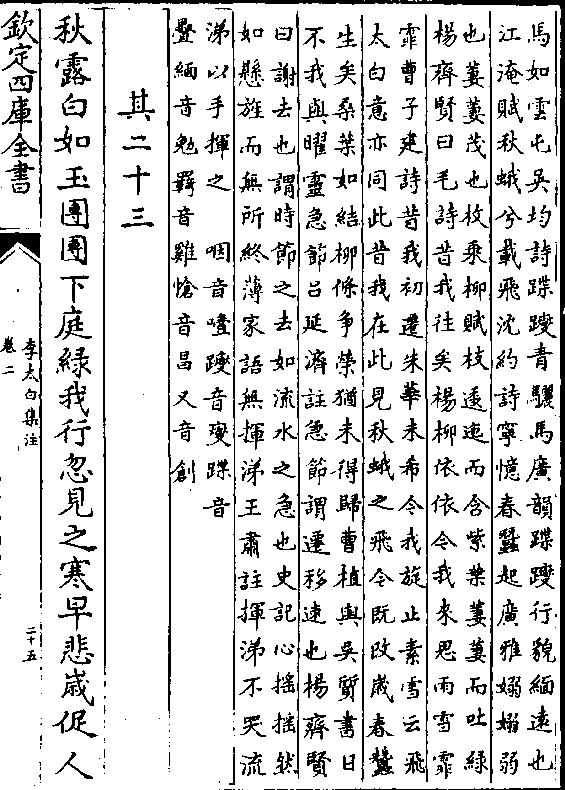 馬如雲屯吳均詩蹀躞青驪馬廣韻蹀躞行貌緬遠也
江淹賦秋蛾兮載飛沈約詩寧憶春蠶起廣雅嫋嫋弱
也萋萋茂也枚乘柳賦枝逶迤而含紫葉萋萋而吐綠
楊齊賢曰毛詩昔我往矣楊柳依依今我來思雨雪霏
霏曹子建詩昔我初遷朱華未希今我旋止素雪云飛
太白意亦同此昔我在此見秋蛾之飛今既改歲春蠶
生矣桑葉如結柳條爭榮猶未得歸曹植與吳質書日
不我與曜靈急節呂延濟註急節謂遷移速也楊齊賢
曰謝去也謂時節之去如流水之急也史記心搖搖然
如懸旌而無所終薄家語無揮涕王肅註揮涕不哭流
涕以手揮之 咽音噎躞音燮蹀音
疊緬音勉羇音雞愴音昌又音創
其二十三
秋露白如玉團團下庭綠我行忽見之寒早悲歲促人
欽定四庫全書
李太白集注
卷二
二十五